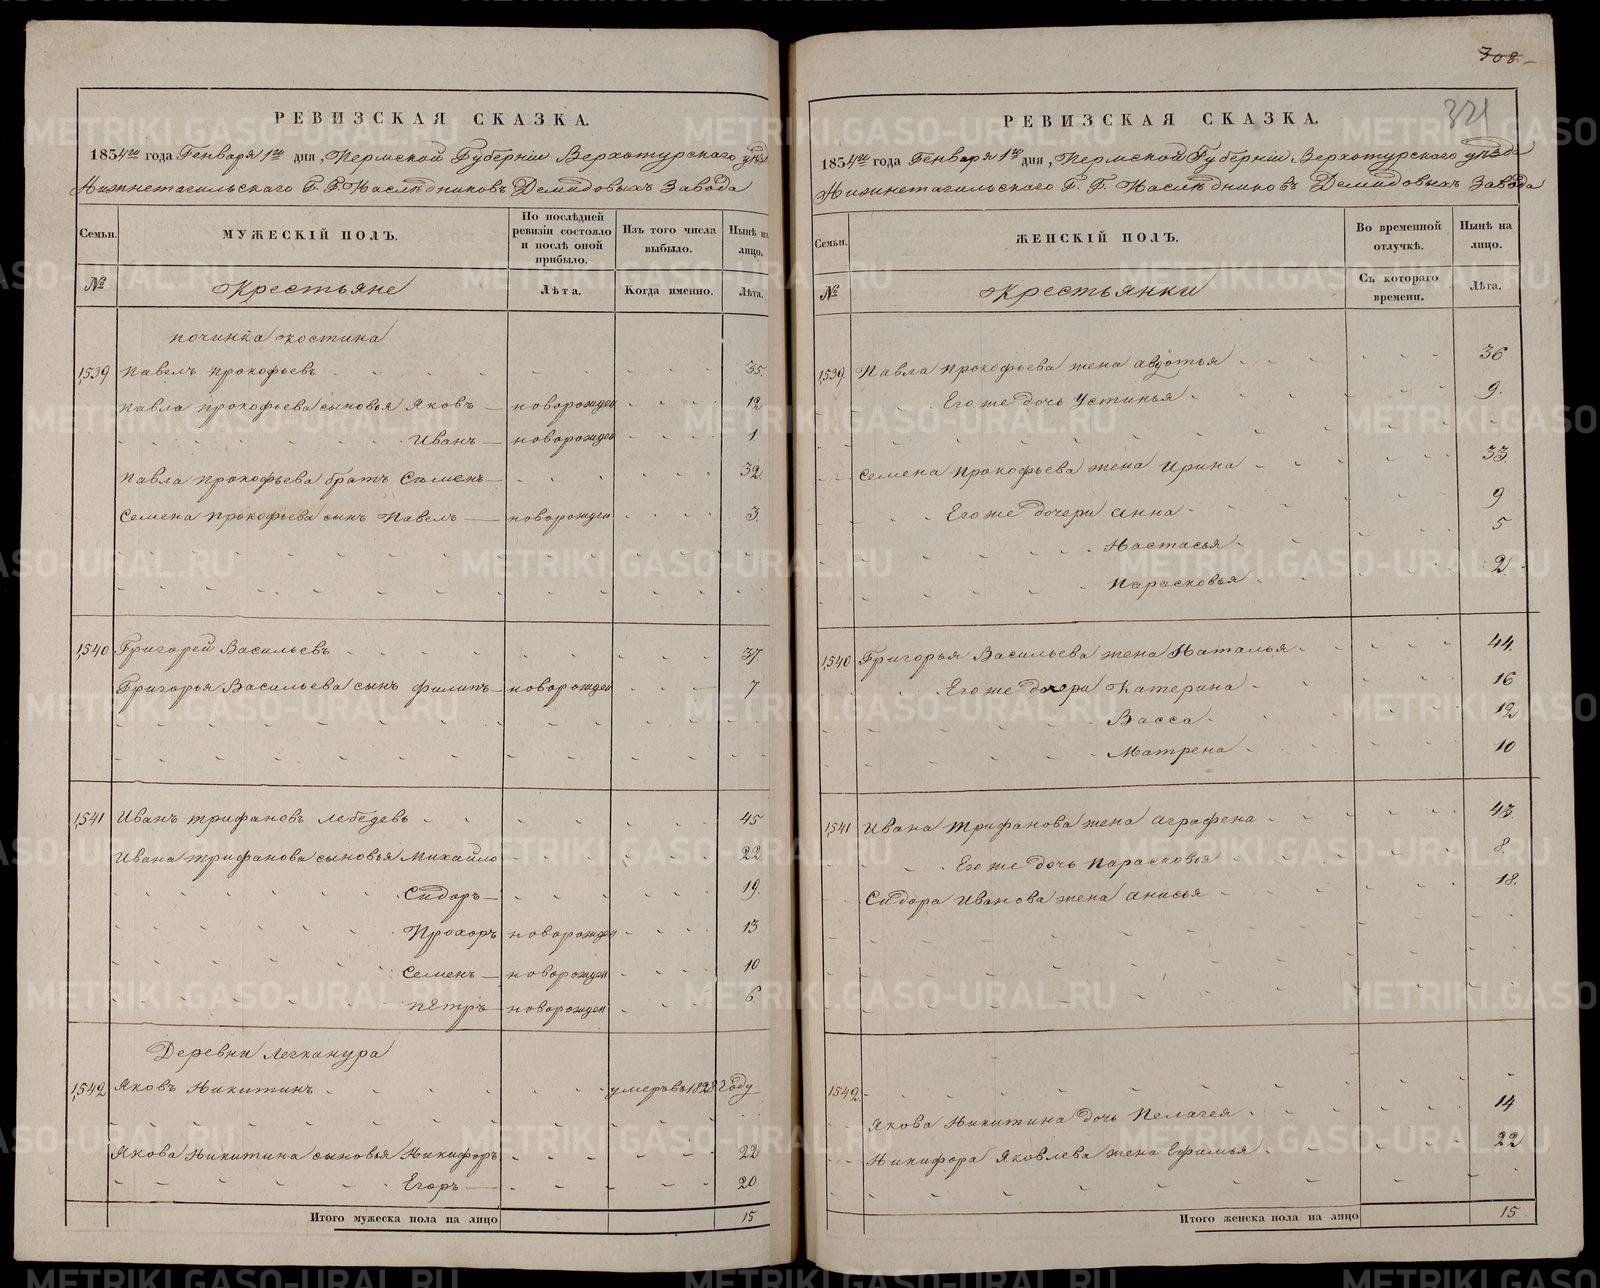 РЕВИЗСКАЯ СКАЗКА.
1834го года Генваря 1го дня, Пермской Губернiи Верхотурскаго уѣзда
Нижнетагильскаго Г. Г. Наслѣдниковъ Демидовыхъ Завода
Семьи. МУЖЕСКІЙ ПОЛЪ. По послѣдней ревизіи состояло и послѣ оной прибыло. Изъ того числа выбыло. Нынѣ на лицо.
№ Крестьяне Лѣта. Когда именно. Лѣта.
починка Костина
1,539 Павелъ Прокофьевъ 35.
Павла Прокофьева сыновья Яковъ новорожден 12
Иванъ новорожден 1
Павла Прокофьева братъ Семенъ 32.
Семена Прокофьева сынъ Павелъ новорожден 3.
1,540 Григорей Васильевъ 37.
Григорья Васильева сынъ Филипъ новорожден 7
1,541 Иванъ Трифановъ Лебедевъ 45
Ивана Трифанова сыновья Михайло 22
Сидоръ 19.
Прохоръ новорожден 13
Семенъ новорожден 10
Пётръ новорожден 6
Деревни Легканура
1,542 Яковъ Никитинъ умеръ въ 1828 году
Якова Никитина сыновья Никифоръ 22
Егоръ 20
Итого мужеска пола на лицо 15
308.
321
РЕВИЗСКАЯ СКАЗКА.
1834го года Генваря 1го дня, Пермской Губернiи Верхотурскаго уѣзда
Нижнетагильскаго Г. Г. Наслѣдниковъ Демидовыхъ Завода
Семьи. ЖЕНСКІЙ ПОЛЪ. Во временной отлучкѣ. Нынѣ на лицо.
№ Крестьянки Съ котораго времени. Лѣта.
1,539. Павла Прокофьева жена Авдотья 36
Его же дочь Устинья 9.
Семена Прокофьева жена Ирина 33.
Его же дочери Анна 9
Настасья 5
Парасковья 2.
1,540 Григорья Васильева жена Наталья 44.
Его же дочери Катерина 16
Васса 12
Матрена 10
1,541 Ивана Трифанова жена Аграфена 43.
Его же дочь Парасковья 8.
Сидора Иванова жена Анисья 18.
1542.
Якова Никитина дочь Пелагея 14
Никифора Яковлева жена Ефимья 22
Итого женска пола на лицо 15
METRIKI.GASO-URAL.RU